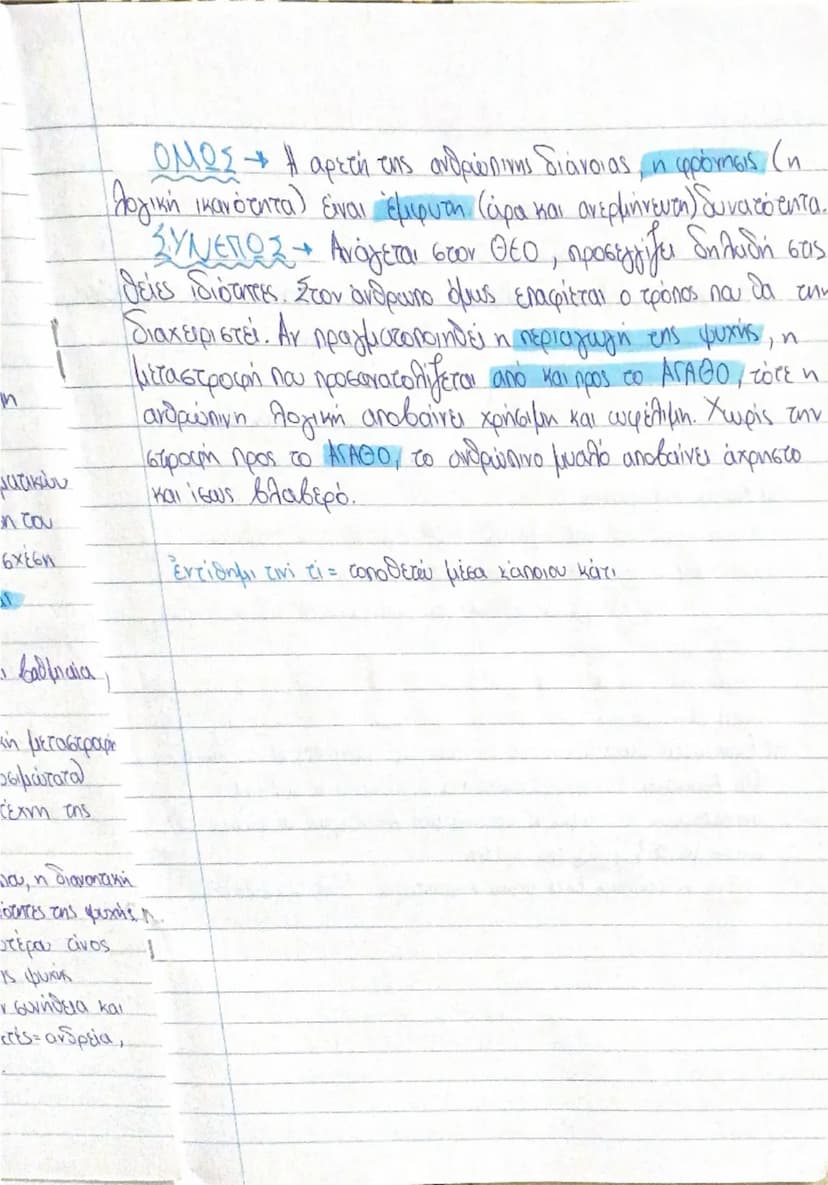 ΟΜΩΣ → Η αρετή της ανθρώπινης διάνοιας, η φρόνησις (η
λογική ικανότητα) είναι έμφυτη (άρα και ανερμήνευτη) δυνατότητα.
ΣΥΝΕΠΩΣ → Ανάγεται στον ΘΕΟ, προσεγγίζει δηλαδή στις
θείες ιδιότητες. Στον άνθρωπο όμως επαφίεται ο τρόπος που θα την
διαχειριστεί. Αν πραγματοποιηθεί η περιαγωγή της ψυχής, η
μεταστροφή που προσανατολίζεται από και προς το ΑΓΑΘΟ, τότε η
ανθρώπινη λογική αποβαίνει χρήσιμη και ωφέλιμη. Χωρίς την
στροφή προς το ΑΓΑΘΟ, το ανθρώπινο μυαλό αποβαίνει άχρηστο
και ίσως βλαβερό.
ἐντίθημι τινί τι = τοποθετώ μέσα κάποιου κάτι
η
ματικών
η του
σχέση
βαθμιαία,
κή μεταστροφή
τέχνη της
η διανοητική
της ψυχής
τέρα τινος
ς ψυχή
συνήθεια και
ανδρεία,